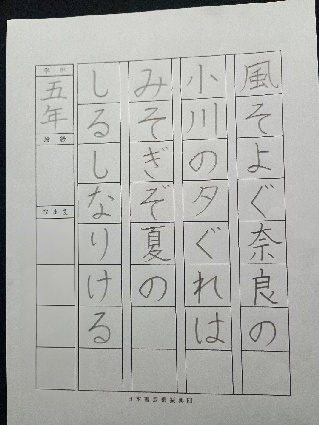 風そよぐ奈良の
小川の夕ぐれは
みそぎぞ夏の
しるしなりける
五年